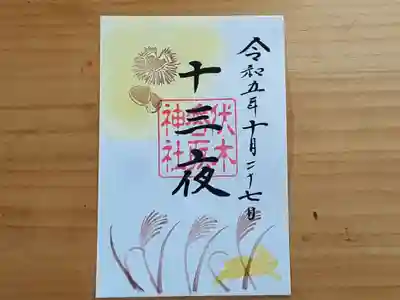 令和五年十月二十七日
十三夜
伏木
香取
神社